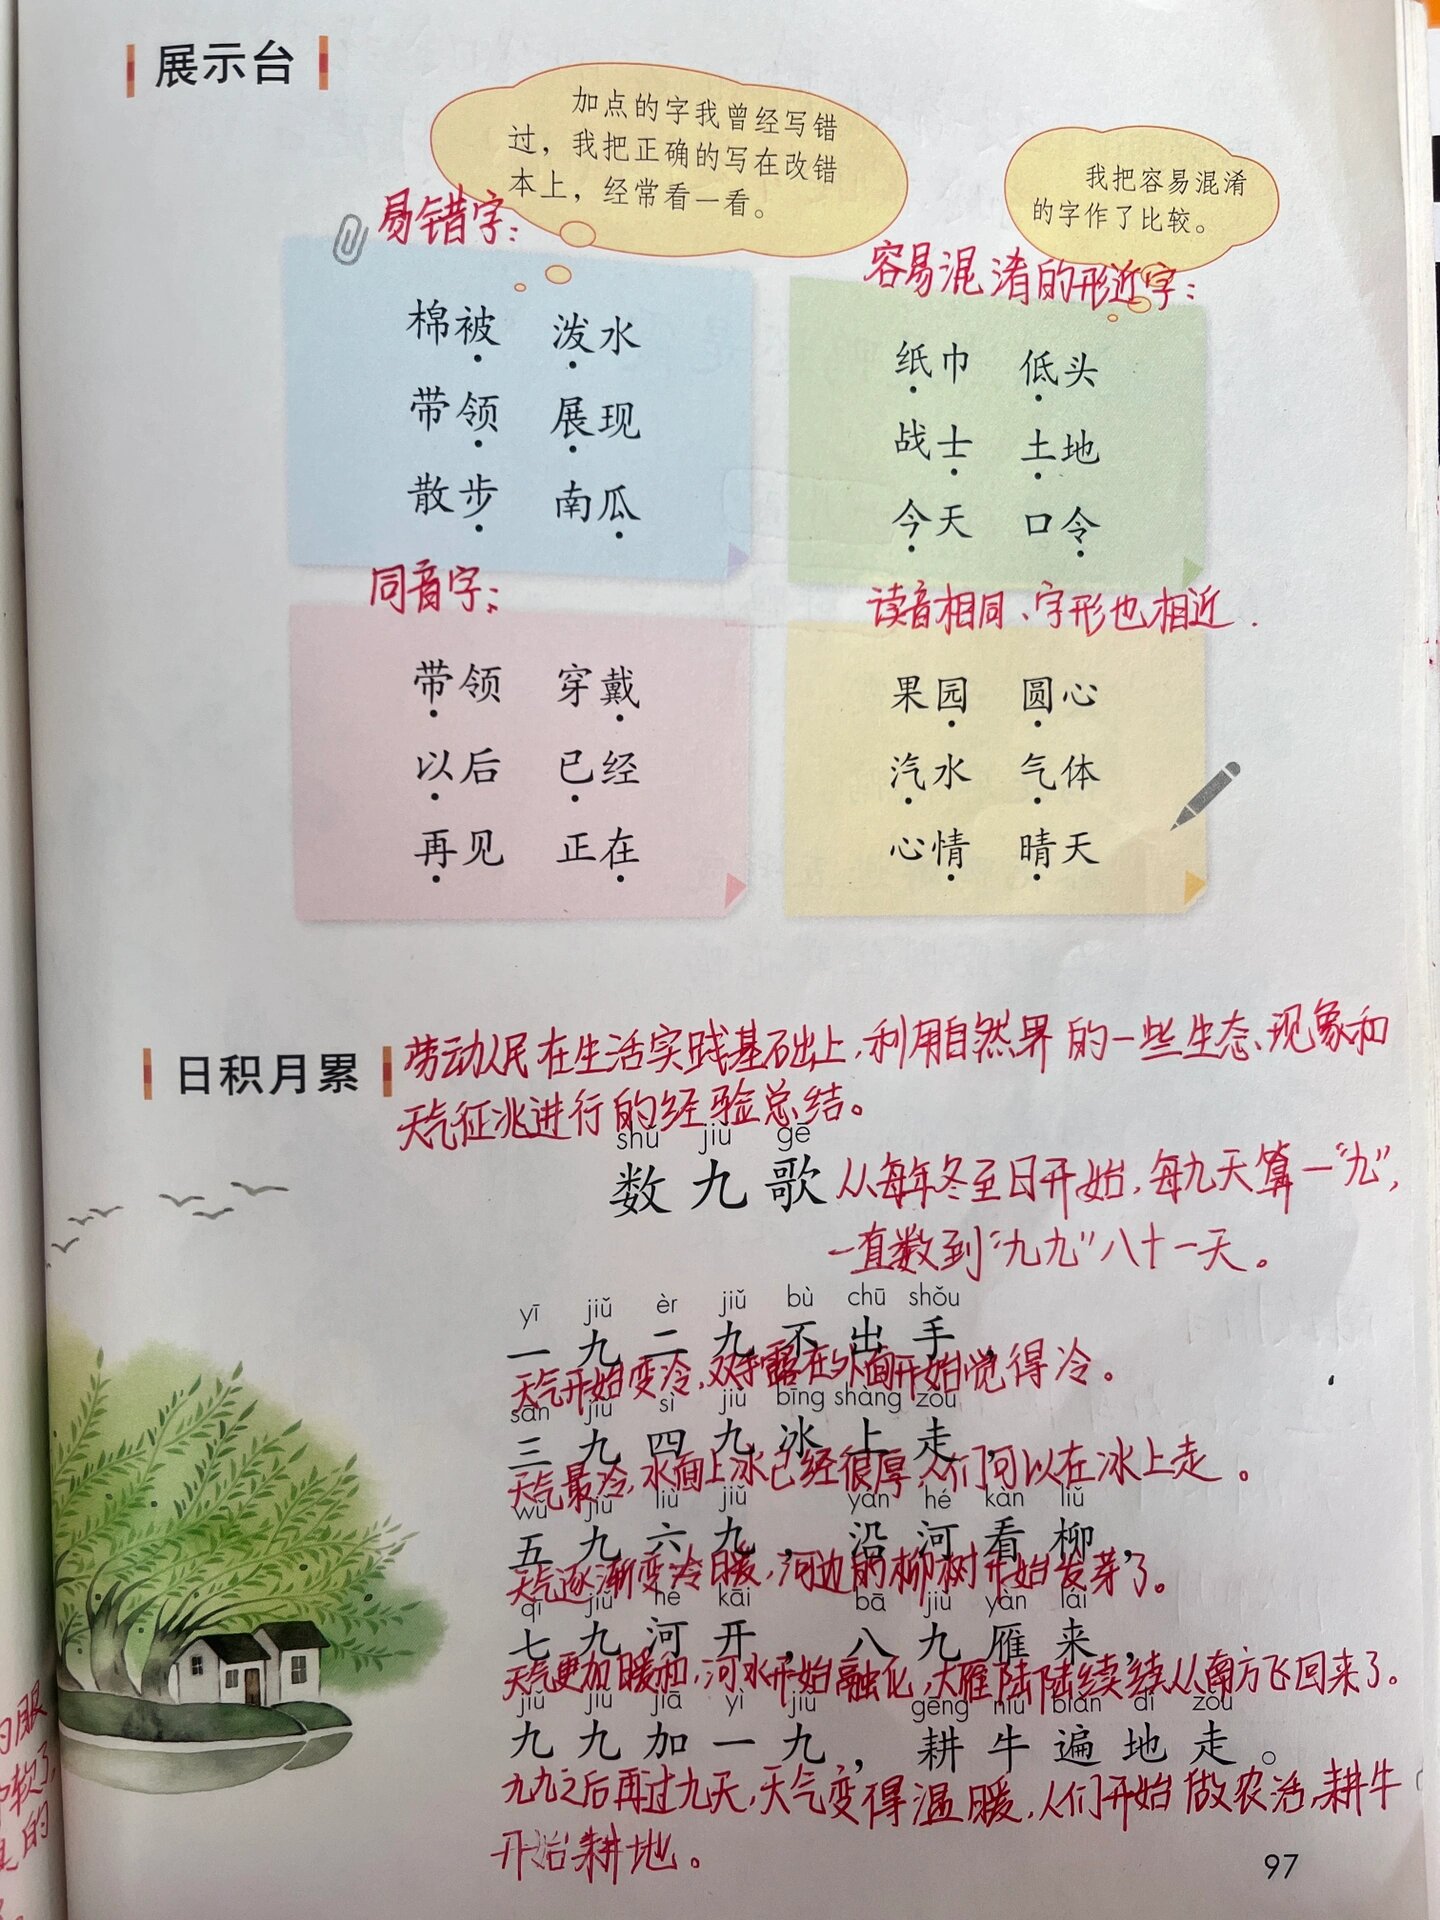 展示台
加点的字我曾经写错
过，我把正确的写在改错
本上，经常看一看。
我把容易混淆
的字作了比较。
易错字：
棉被 泼水
带领 展现
散步 南瓜
容易混淆的形近字：
纸巾 低头
战士 土地
今天 口令
同音字：
带领 穿戴
以后 已经
再见 正在
读音相同、字形也相近.
果园 圆心
汽水 气体
心情 晴天
日积月累
劳动人民在生活实践基础上，利用自然界的一些生态、现象和
天气征兆进行的经验总结。
shǔ jiǔ gē
数九歌
从每年冬至日开始，每九天算一“九”，
一直数到“九九”八十一天。
yī jiǔ èr jiǔ bù chū shǒu
一九二九不出手，
天气开始变冷，双手露在外面开始觉得冷。
sān jiǔ sì jiǔ bīng shàng zǒu
三九四九冰上走，
天气最冷，水面上冰已经很厚，人们可以在冰上走。
wǔ jiǔ liù jiǔ yán hé kàn liǔ
五九六九，沿河看柳，
天气逐渐变冷暖，河边的柳树开始发芽了。
qī jiǔ hé kāi bā jiǔ yàn lái
七九河开，八九雁来，
天气更加暖和，河水开始融化，大雁陆陆续续从南方飞回来了。
jiǔ jiǔ jiā yī jiǔ gēng niú biàn dì zǒu
九九加一九，耕牛遍地走。
九九之后再过九天，天气变得温暖，人们开始做农活，耕牛
开始耕地。
97